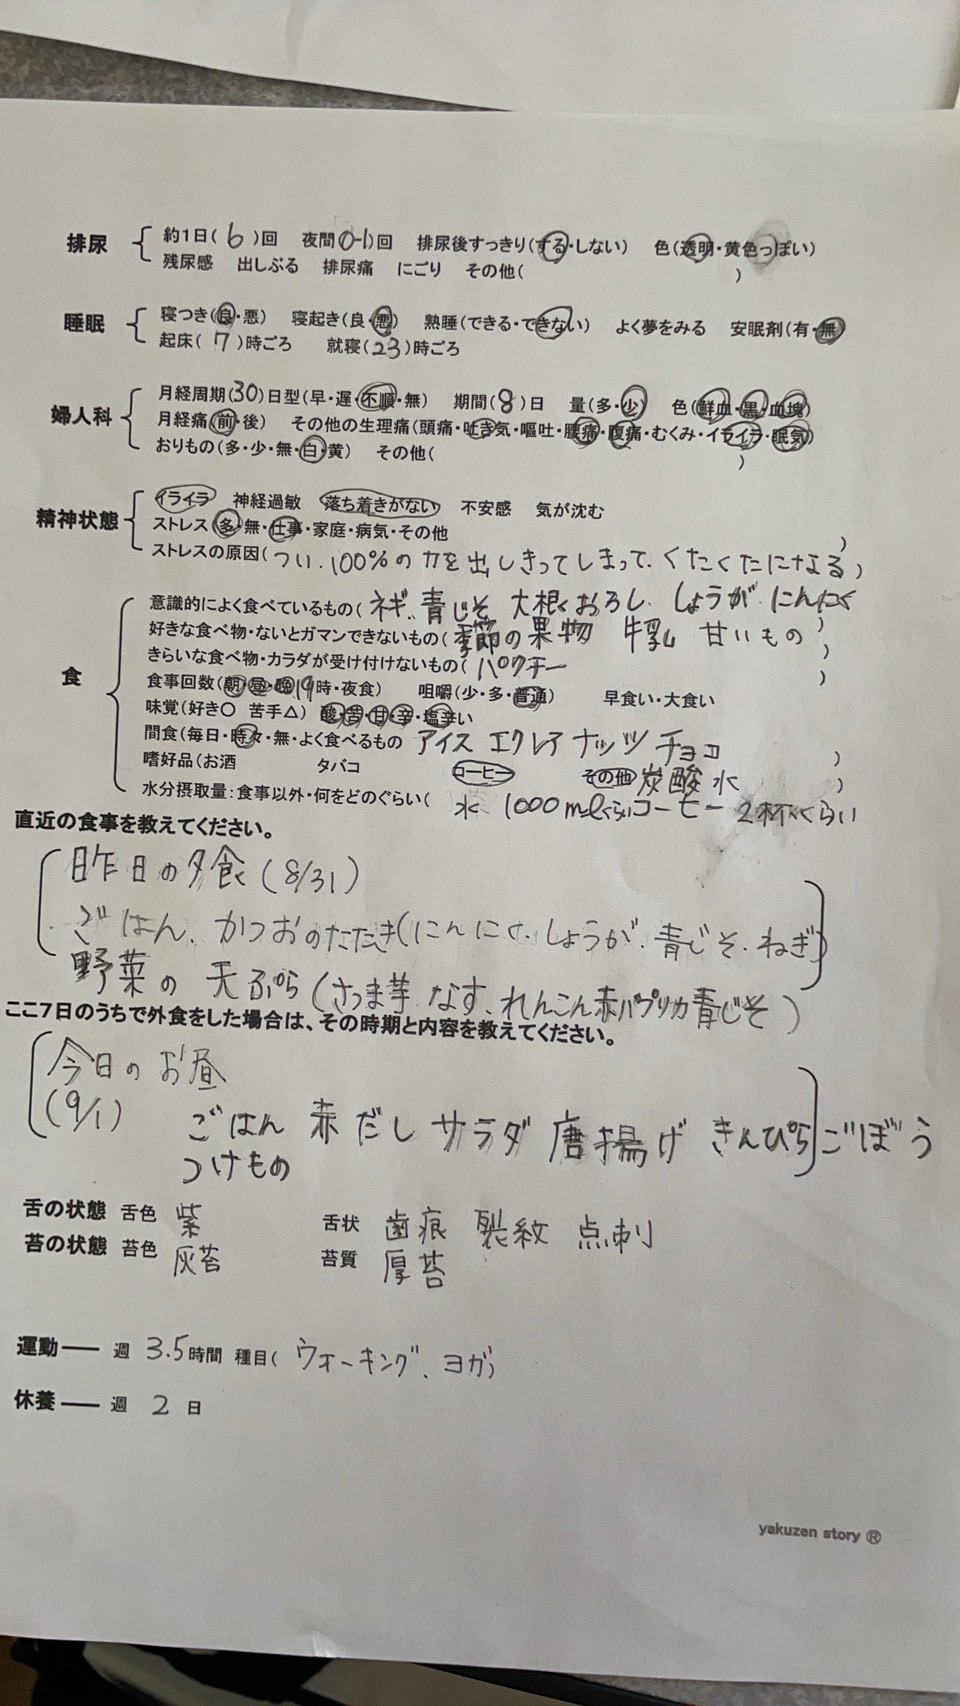 排尿 約1日(6)回 夜間(0-1)回 排尿後すっきり(する・しない) 色(透明・黄色っぽい)
残尿感 出しぶる 排尿痛 にごり その他( )
睡眠 寝つき(良・悪) 寝起き(良・悪) 熟睡(できる・できない) よく夢をみる 安眠剤(有・無)
起床(7)時ごろ 就寝(23)時ごろ
婦人科 月経周期(30)日型(早・遅・不順・無) 期間(8)日 量(多・少) 色(鮮血・黒・血塊)
月経痛(前・後) その他の生理痛(頭痛・吐き気・嘔吐・腰痛・腹痛・むくみ・イライラ・眠気)
おりもの(多・少・無・白・黄) その他( )
精神状態 イライラ 神経過敏 落ち着きがない 不安感 気が沈む
ストレス(多・無・仕事・家庭・病気・その他 )
ストレスの原因(つい、100%の力を出しきってしまって、くたくたになる)
食 意識的によく食べているもの(ネギ、青じそ 大根おろし、しょうが、にんにく )
好きな食べ物・ないとガマンできないもの(季節の果物 牛乳 甘いもの )
きらいな食べ物・カラダが受け付けないもの(パクチー )
食事回数(朝・昼・晩19時・夜食) 咀嚼(少・多・普通) 早食い・大食い
味覚(好き〇 苦手△) 酸・苦・甘・辛・塩辛い
間食(毎日・時々・無・よく食べるもの アイス エクレア ナッツ チョコ )
嗜好品(お酒 タバコ コーヒー その他 炭酸水 )
水分摂取量:食事以外・何をどのぐらい( 水 1000mlくらいコーヒー 2杯くらい
直近の食事を教えてください。
昨日の夕食(8/31)
ごはん、かつおのたたき(にんにく、しょうが、青じそ、ねぎ)
野菜の天ぷら(さつま芋 なす、れんこん赤パプリカ青じそ)
ここ7日のうちで外食をした場合は、その時期と内容を教えてください。
今日のお昼
(9/1) ごはん 赤だし サラダ 唐揚げ きんぴらごぼう
つけもの
舌の状態 舌色 紫 舌状 歯痕 裂紋 点刺
苔の状態 苔色 灰苔 苔質 厚苔
運動 ── 週 3.5時間 種目(ウォーキング、ヨガ)
休養 ── 週 2 日
yakuzen story ®